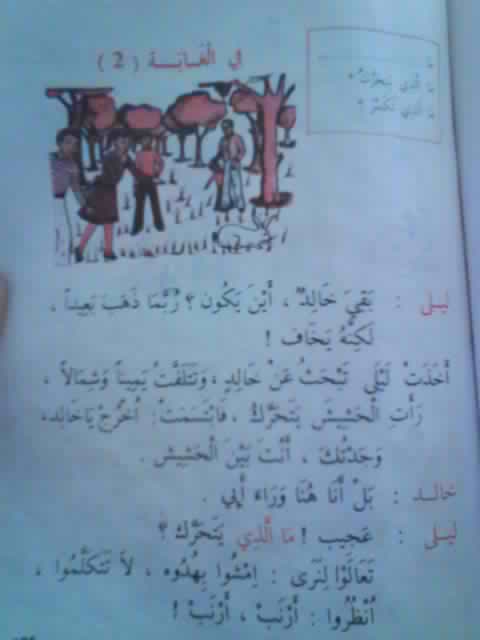 مَا الَّذِي يَتَحَرَّكُ ؟
مَا الَّذِي تَكَسَّرَ ؟
فِي الْغَابَــة ( 2 )
ليـلى : بَقِيَ خَالِدٌ ، أَيْنَ يَكُون ؟ رُبَّمَا ذَهَبَ بَعِيداً ،
لَكِنَّهُ يَخَاف !
أَخَذَتْ لَيْلَى تَبْحَثُ عَنْ خَالِدٍ ، وَتَتَلَفَّتُ يَمِيناً وَشِمَالاً ،
رَأَتِ الْحَشِيشَ يَتَحَرَّكُ ، فَابْتَسَمَتْ : اُخْرُجْ يَا خَالِد،
وَجَدْتُكَ ، أَنْتَ بَيْنَ الْحَشِيشِ .
خالـد : بَلْ أَنَا هُنَا وَرَاءَ أَبِي .
ليـلى : عَجِيب ! مَا الَّذِي يَتَحَرَّك ؟
تَعَالَوْا لِنَرَى : اِمْشُوا بِهُدُوء ، لاَ تَتَكَلَّمُوا ،
اُنْظُرُوا : أَرْنَبٌ ، أَرْنَبٌ !